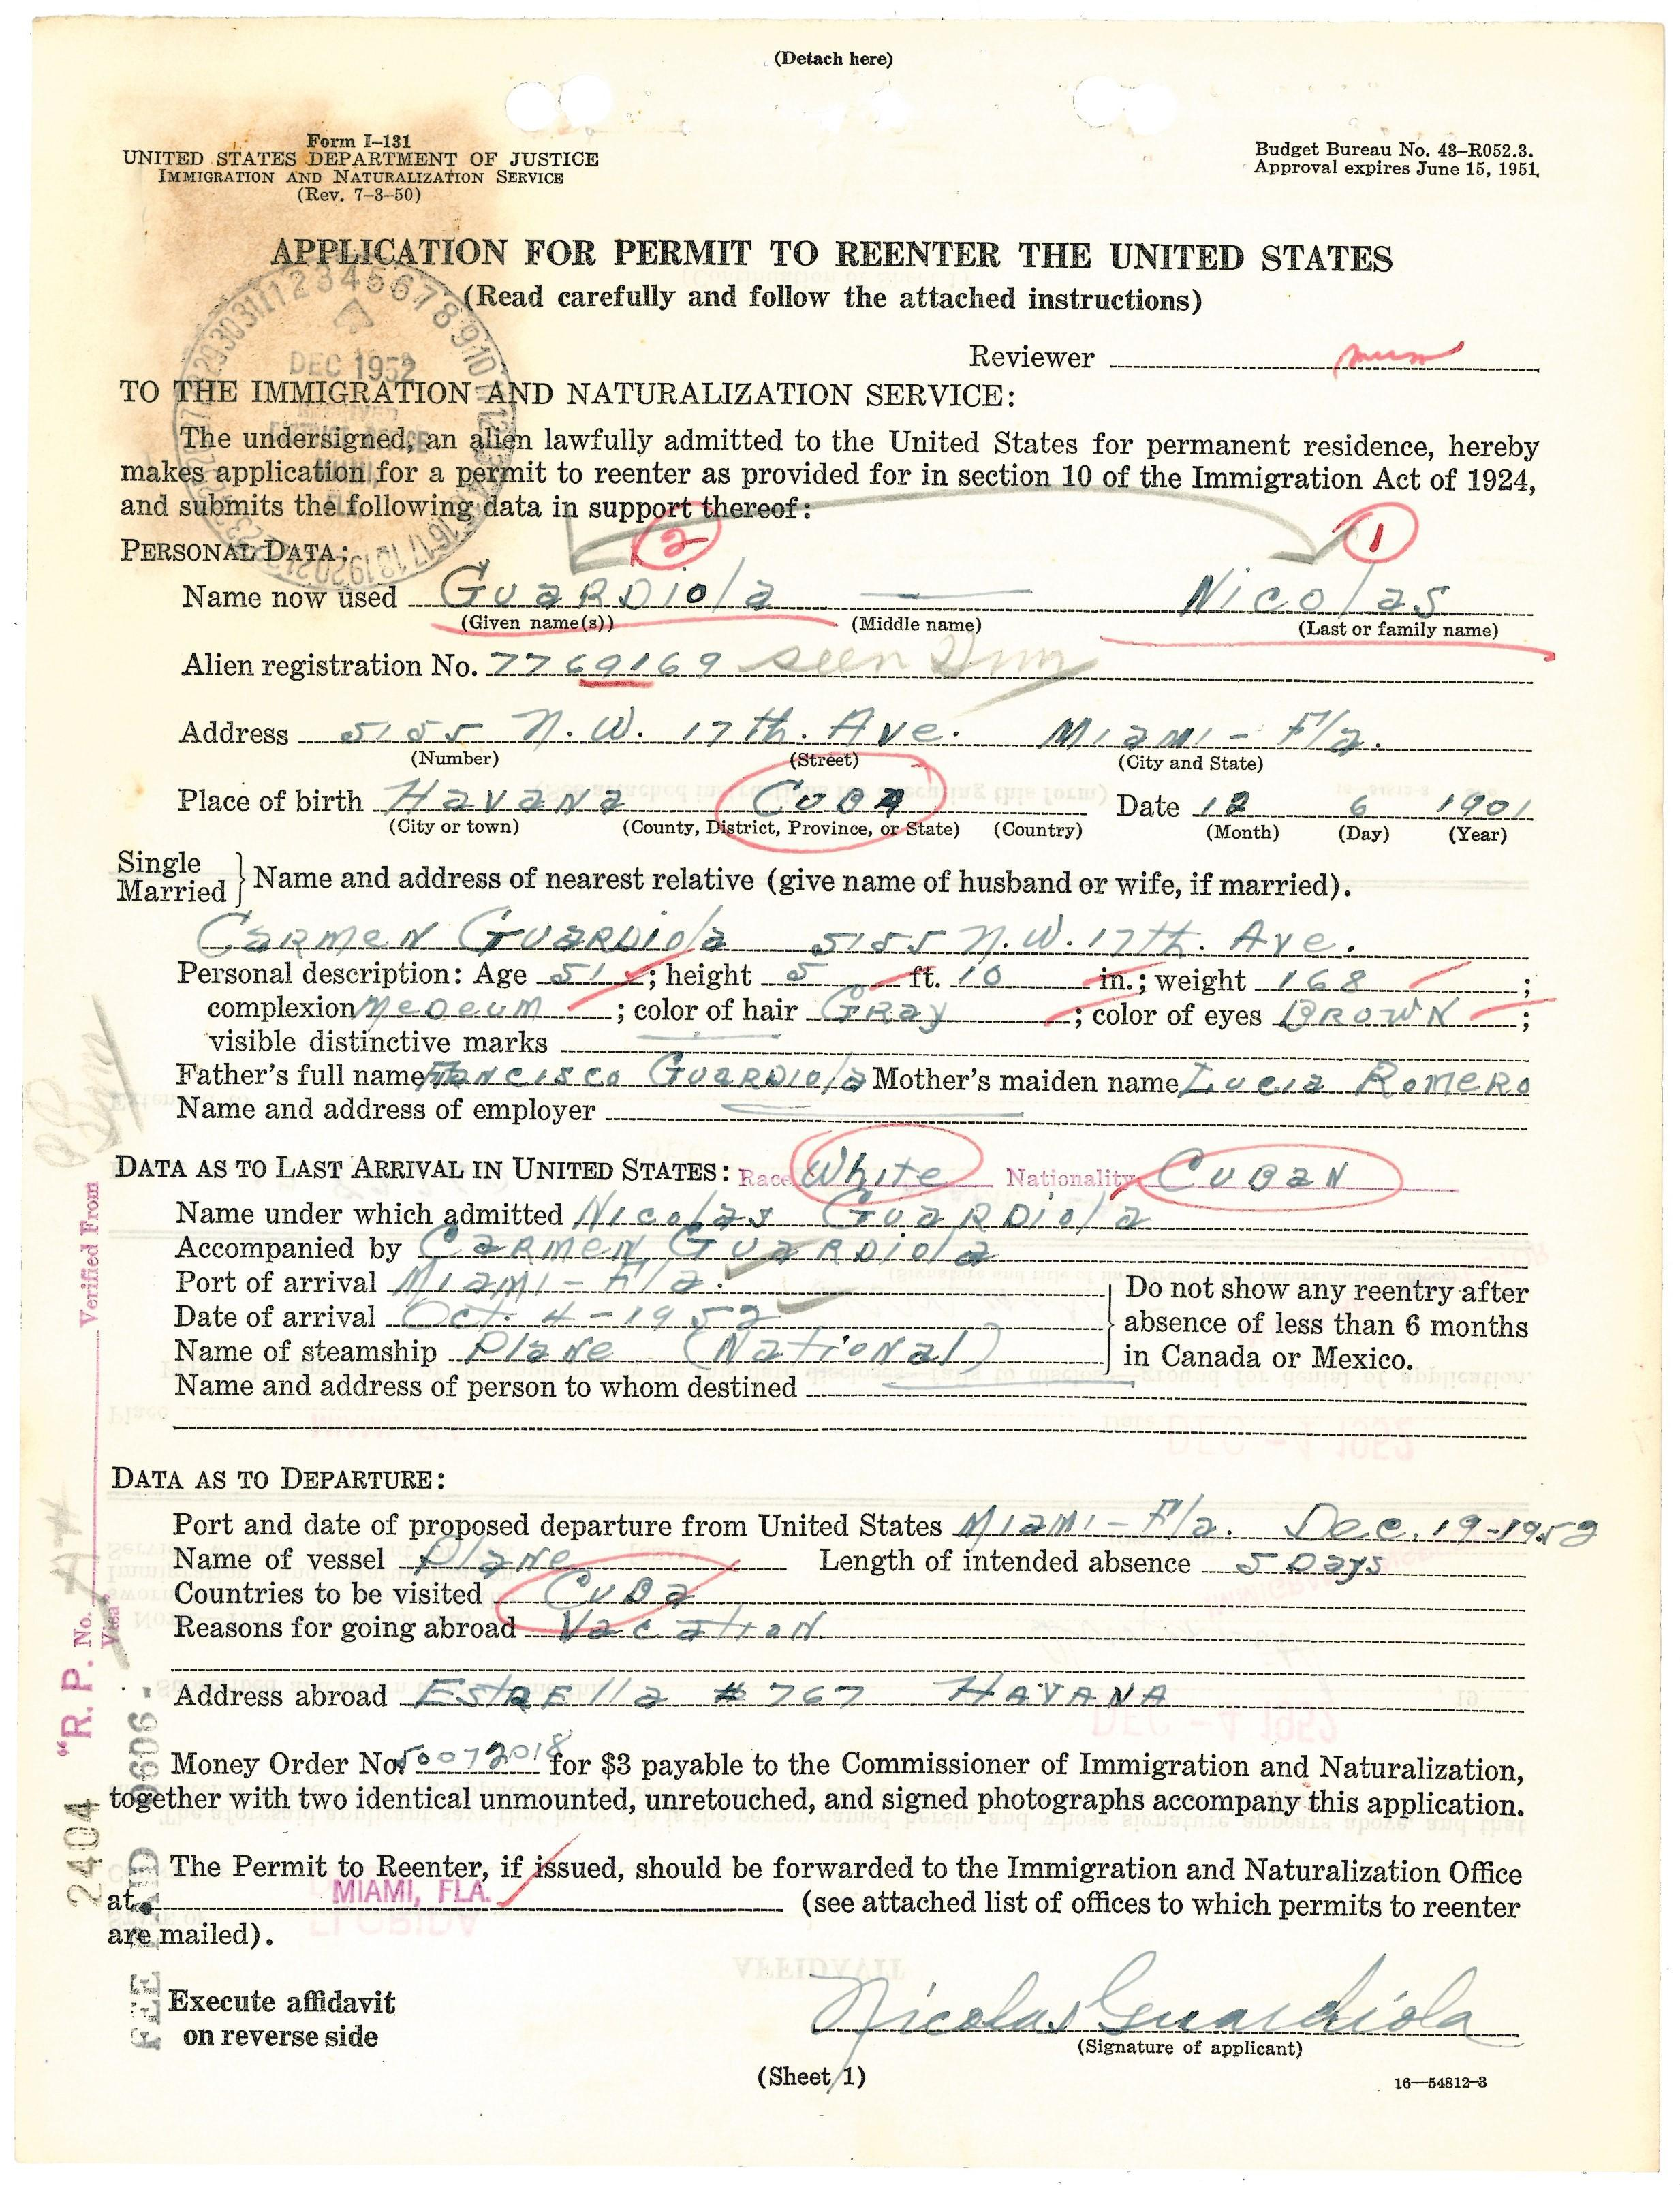 (Detach here)
Form I-131
UNITED STATES DEPARTMENT OF JUSTICE
IMMIGRATION AND NATURALIZATION SERVICE
(Rev. 7-3-50)
Budget Bureau No. 43-R052.3.
Approval expires June 15, 1951.
APPLICATION FOR PERMIT TO REENTER THE UNITED STATES
(Read carefully and follow the attached instructions)
DEC 1952
Reviewer
TO THE IMMIGRATION AND NATURALIZATION SERVICE:
The undersigned, an alien lawfully admitted to the United States for permanent residence, hereby
makes application for a permit to reenter as provided for in section 10 of the Immigration Act of 1924,
and submits the following data in support thereof:
PERSONAL DATA:
2 1
Name now used Guardiola — Nicolas
(Given name(s)) (Middle name) (Last or family name)
Alien registration No. 7769169 seen
Address 5155 N.W. 17th. Ave. Miami - Fla.
(Number) (Street) (City and State)
Place of birth Havana Cuba Date 12 6 1901
(City or town) (County, District, Province, or State) (Country) (Month) (Day) (Year)
Single
Married } Name and address of nearest relative (give name of husband or wife, if married).
Carmen Guardiola 5155 N.W. 17th. Ave.
Personal description: Age 51 ; height 5 ft. 10 in.; weight 168 ;
complexion Medeum ; color of hair Gray ; color of eyes Brown ;
visible distinctive marks
Father's full name Francisco Guardiola Mother's maiden name Lucia Romero
Name and address of employer
DATA AS TO LAST ARRIVAL IN UNITED STATES: Race White Nationality Cuban
Name under which admitted Nicolas Guardiola
Accompanied by Carmen Guardiola
Port of arrival Miami - Fla.
Date of arrival Oct. 4 - 1952
Name of steamship Plane (National)
Do not show any reentry after
absence of less than 6 months
in Canada or Mexico.
Name and address of person to whom destined
DATA AS TO DEPARTURE:
Port and date of proposed departure from United States Miami - Fla. Dec. 19-1952
Name of vessel Plane Length of intended absence 5 Days
Countries to be visited Cuba
Reasons for going abroad Vacation
Address abroad Estrella # 767 Havana
Money Order No. 50072018 for $3 payable to the Commissioner of Immigration and Naturalization,
together with two identical unmounted, unretouched, and signed photographs accompany this application.
The Permit to Reenter, if issued, should be forwarded to the Immigration and Naturalization Office
at MIAMI, FLA. (see attached list of offices to which permits to reenter
are mailed).
Execute affidavit
on reverse side
Nicolas Guardiola
(Signature of applicant)
(Sheet 1)
16—54812-3
"R. P. No. Verified From
Visa
2404
FEE PAID 0606 -